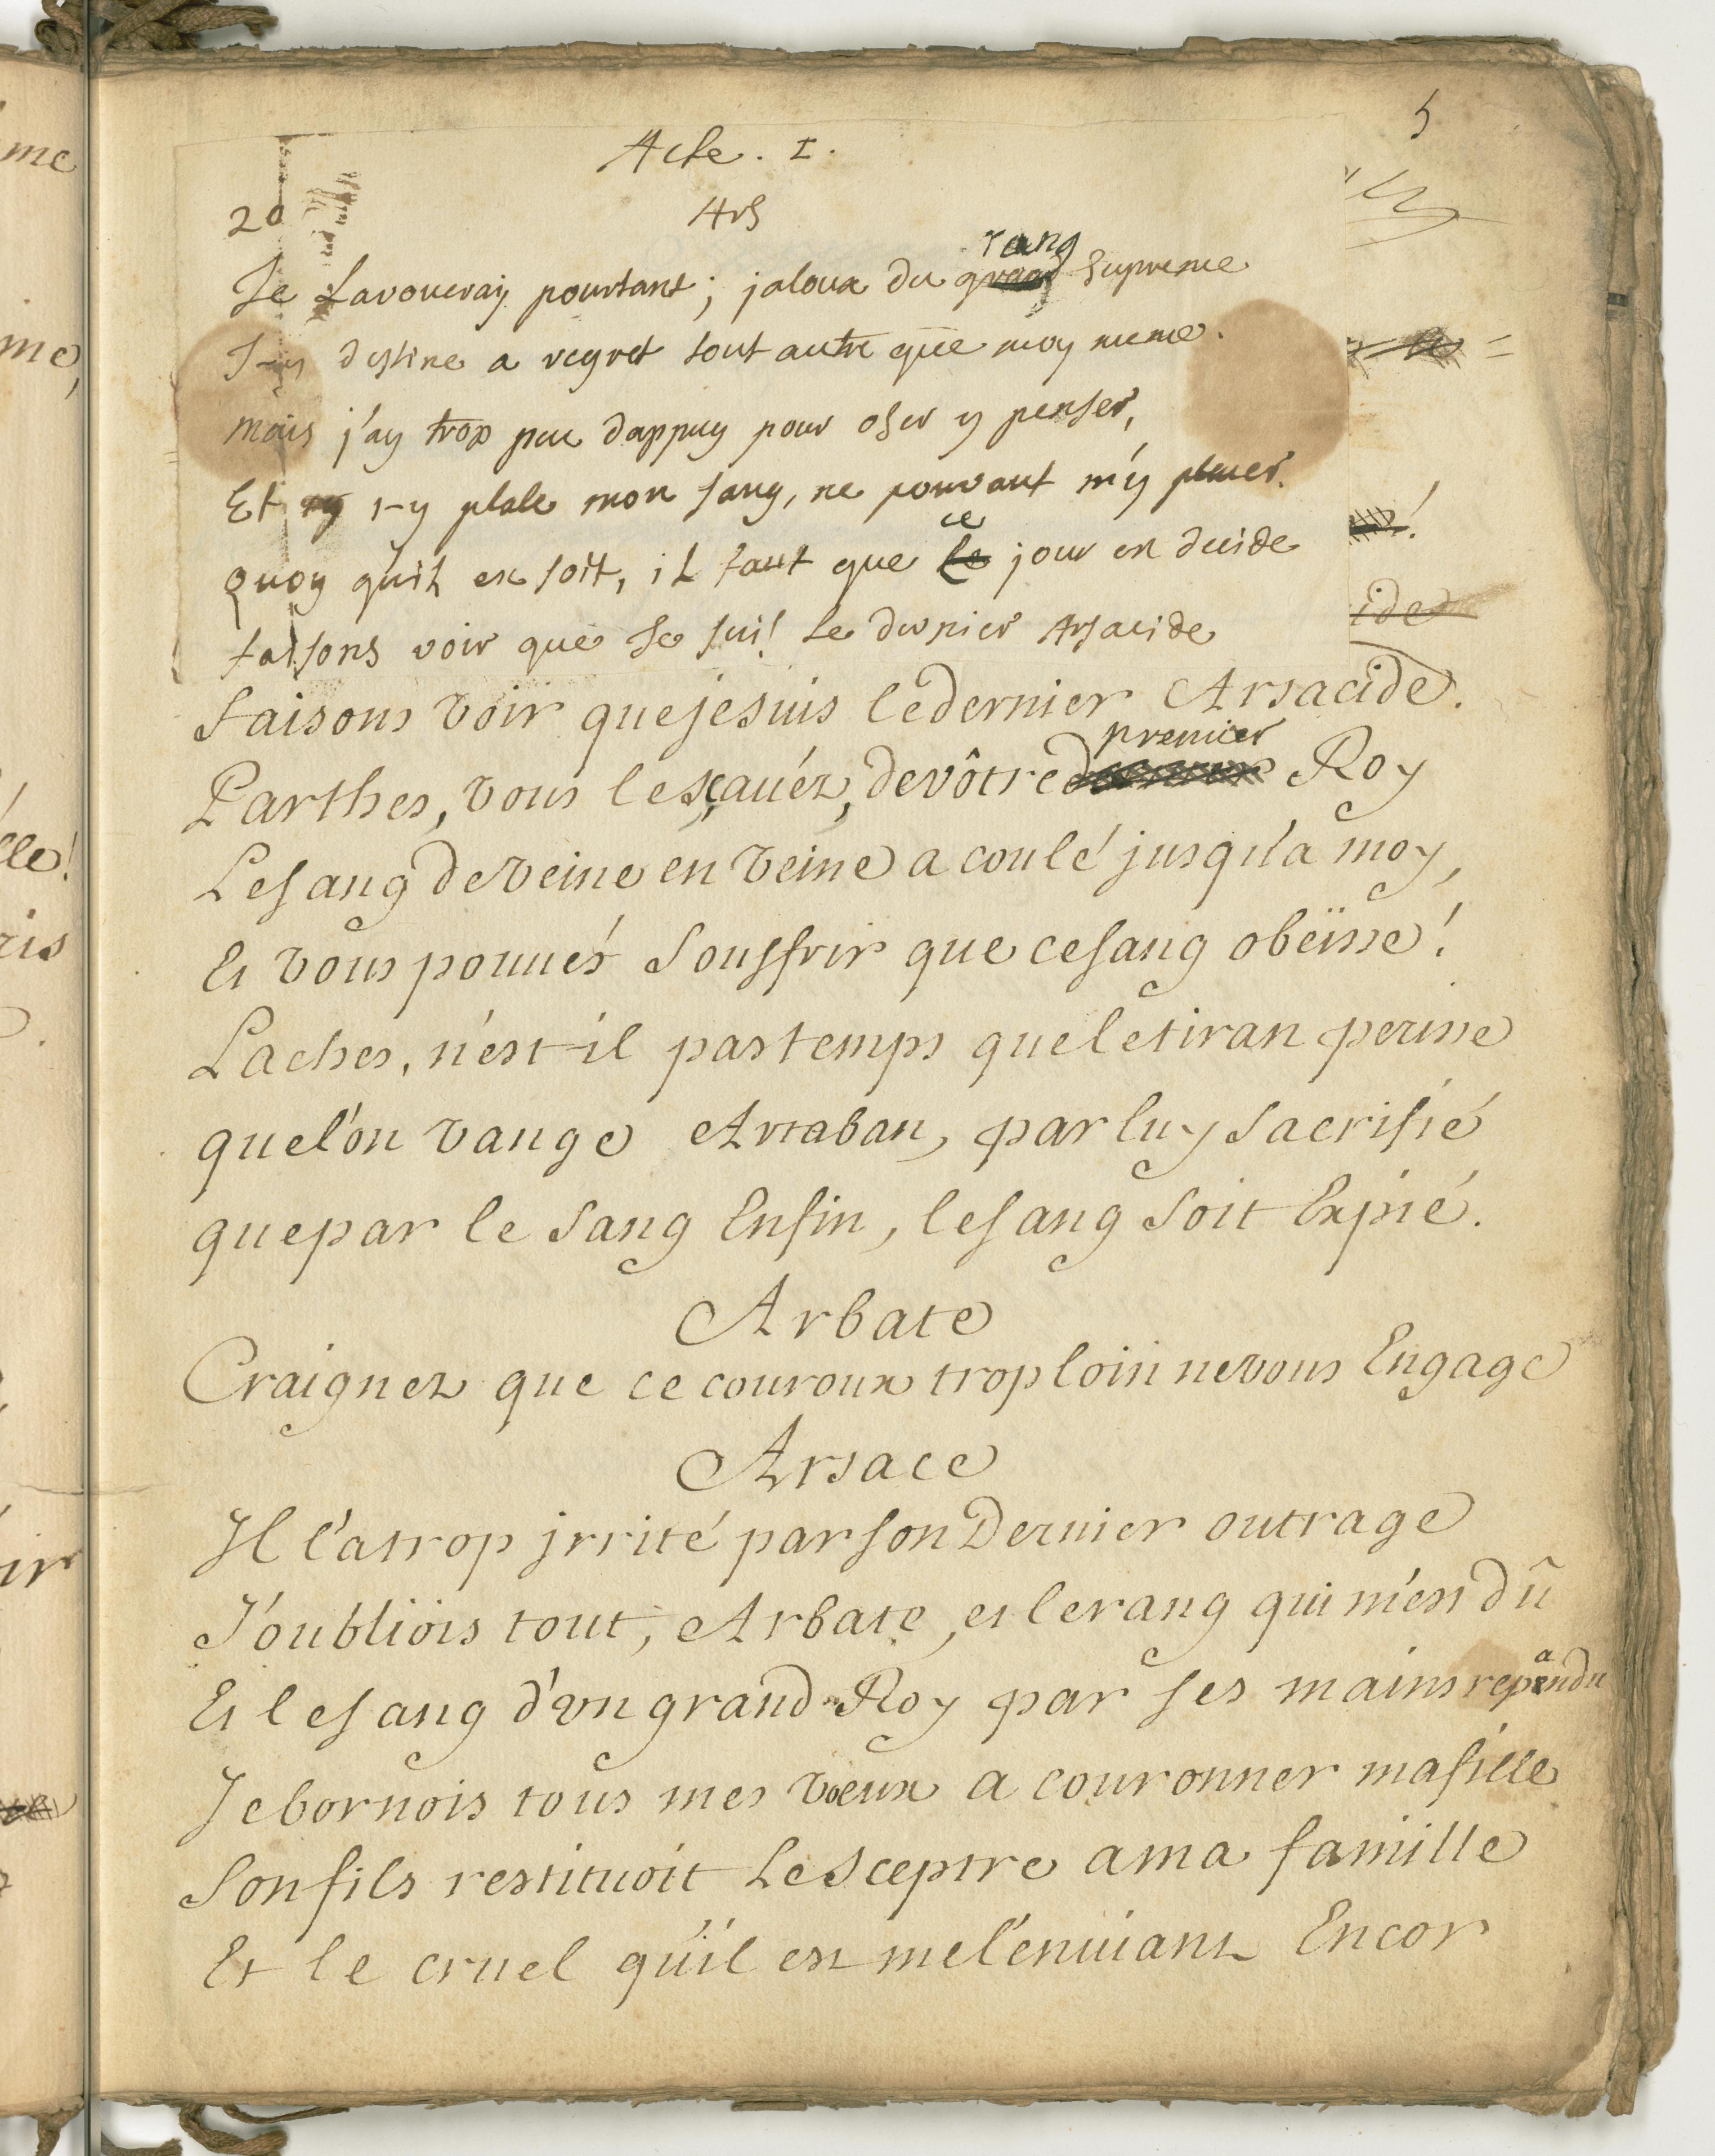 5
Acte. I.
20
Ars
rang
Je Lavoueray pourtant; jaloux du grand supreme
J-y destine a regret tout autre que moy meme.
mais j'ay trop peu dappuy pour oser y penser,
Et j-y place mon sang, ne pouvant m'y placer.
ce
quoy quil en soit, il faut que le jour en decide
faisons voir que Je suis le dernier Arsacide
faisons voir que je suis le dernier Arsacide.
premier
Parthes, vous le sçauéz, de vôtre Roy
Le sang de veine en veine a coulé jusqu'a moy,
Et vous pouués souffrir que ce sang obëisse!
Laches, n'est-il pas temps que le tiran perisse
que l'on vange Artaban, par luy sacrifié
que par le sang Enfin, le sang soit Expié.
Arbate
Craignez que ce couroux trop loin ne vous Engage
Arsace
Il l'a trop jrrité par son Dernier outrage
J'oubliois tout, Arbate, et le rang qui m'est dû
Et le sang d'un grand Roy par ses mains repandu
Je bornois tous mes voeux a couronner ma fille
Son fils restituoit Le sceptre a ma famille
Et le cruel qu'il est me l'enuiant Encor